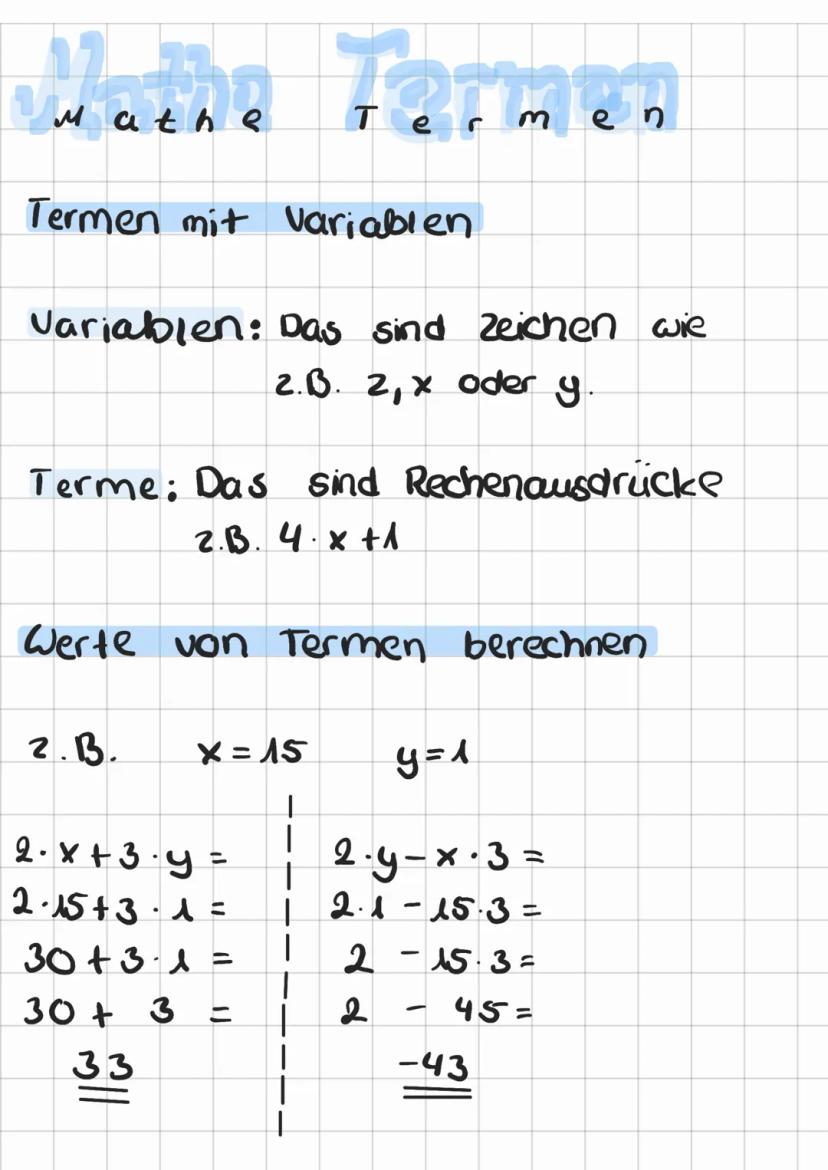 Mathe Termen
Mathe Termen
Termen mit Variablen
Variablen: Das sind Zeichen wie
z.B. z, x oder y.
Terme: Das sind Rechenausdrücke
z.B. 4 · x + 1
Werte von Termen berechnen
z.B. x = 15 y = 1
2 · x + 3 · y = 2 · y - x · 3 =
2 · 15 + 3 · 1 = 2 · 1 - 15 · 3 =
30 + 3 · 1 = 2 - 15 · 3 =
30 + 3 = 2 - 45 =
33 -43